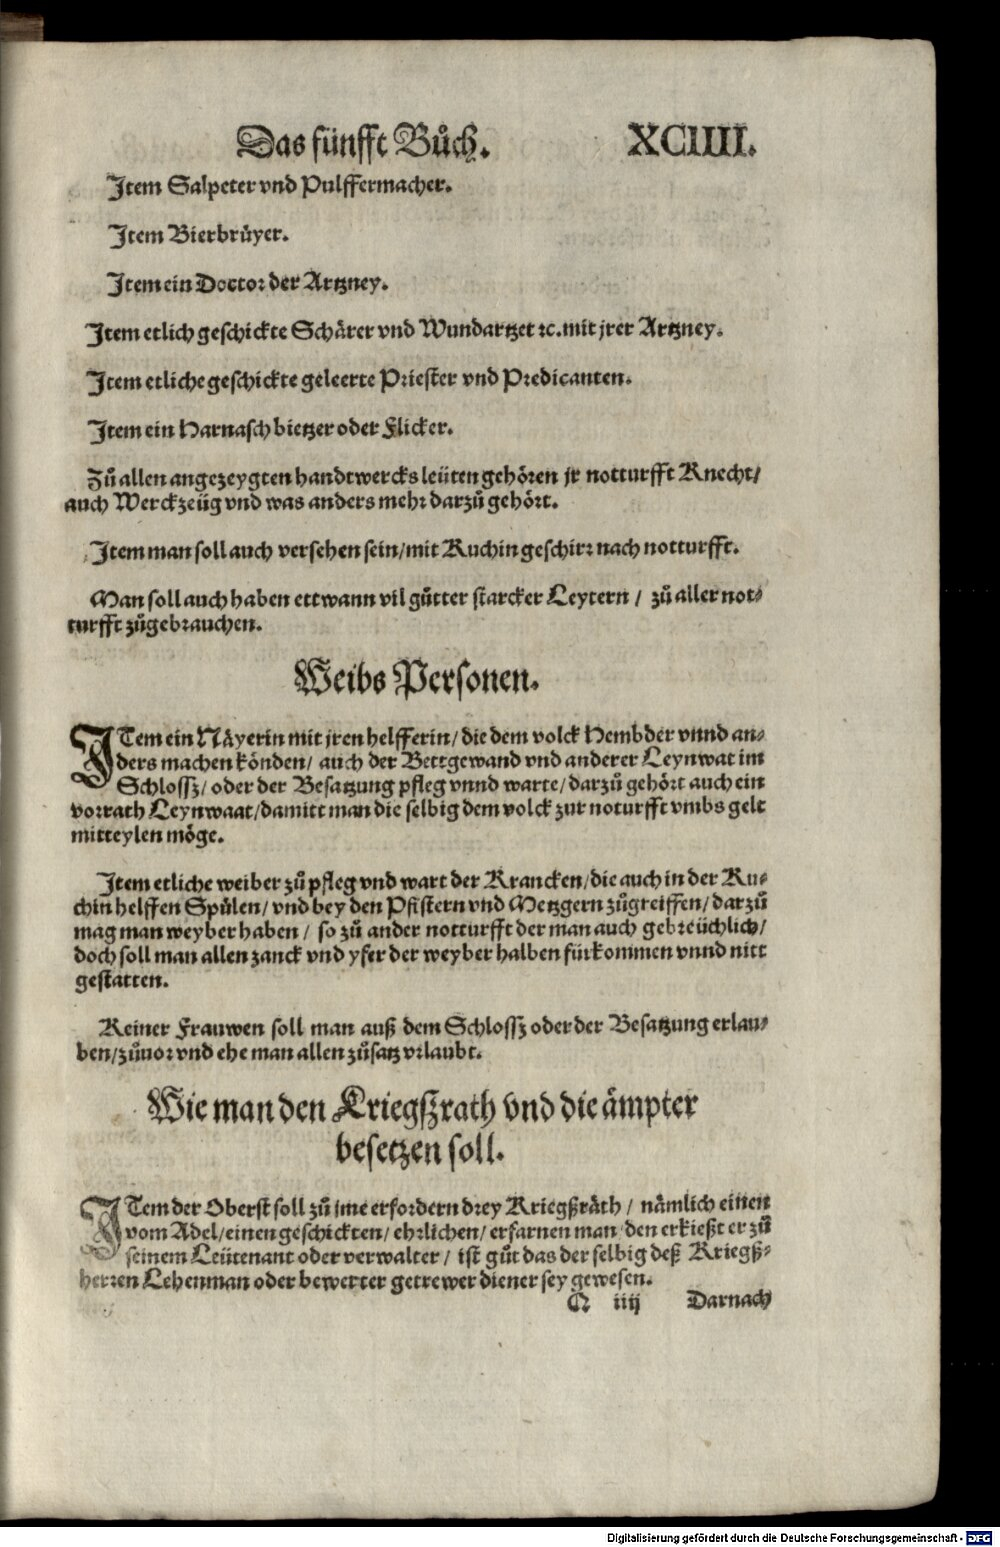 Das fünfft Bůch. XCIIII.
Item Salpeter vnd Pulffermacher.
Item Bierbrüyer.
Item ein Doctor der Artzney.
Item etlich geschickte Schärer vnd Wundartzet ꝛc. mit jrer Artzney.
Item etliche geschickte geleerte Priester vnd Predicanten.
Item ein Harnasch bietzer oder Flicker.
Zů allen angezeygten handtwercks leüten gehören jr notturfft Knecht/
auch Werckzeüg vnd was anders mehr darzů gehört.
Item man soll auch versehen sein/ mit Kuchin geschirr nach notturfft.
Man soll auch haben ettwann vil gůtter starcker Leytern / zů aller not⸗
turfft zůgebrauchen.
Weibs Personen.
ITem ein Näyerin mit jren helfferin/ die dem volck Hembder vnnd an⸗
ders machen könden/ auch der Bettgewand vnd anderer Leynwat im
Schlossz/ oder der Besatzung pfleg vnnd warte/ darzů gehört auch ein
vorrath Leynwaat/ damitt man die selbig dem volck zur noturfft vmbs gelt
mitteylen möge.
Item etliche weiber zů pfleg vnd wart der Krancken/ die auch in der Ku⸗
chin helffen Spülen/ vnd bey den Pfistern vnd Metzgern zůgreiffen/ darzů
mag man weyber haben / so zů ander notturfft der man auch gebreüchlich/
doch soll man allen zanck vnd yfer der weyber halben fürkommen vnnd nitt
gestatten.
Keiner Frauwen soll man auß dem Schlossz oder der Besatzung erlau⸗
ben/ zůuor vnd ehe man allen zůsatz vrlaubt.
Wie man den Kriegszrath vnd die ämpter
besetzen soll.
ITem der Oberst soll zů jme erfordern drey Kriegßräth / nämlich einen
vom Adel/ einen geschickten/ ehrlichen/ erfarnen man/ den erkießt er zů
seinem Leütenant oder verwalter / ist gůt das der selbig deß Kriegß⸗
herren Lehenman oder bewerter getrewer diener sey gewesen.
Q iiij Darnach
Digitalisierung gefördert durch die Deutsche Forschungsgemeinschaft - DFG